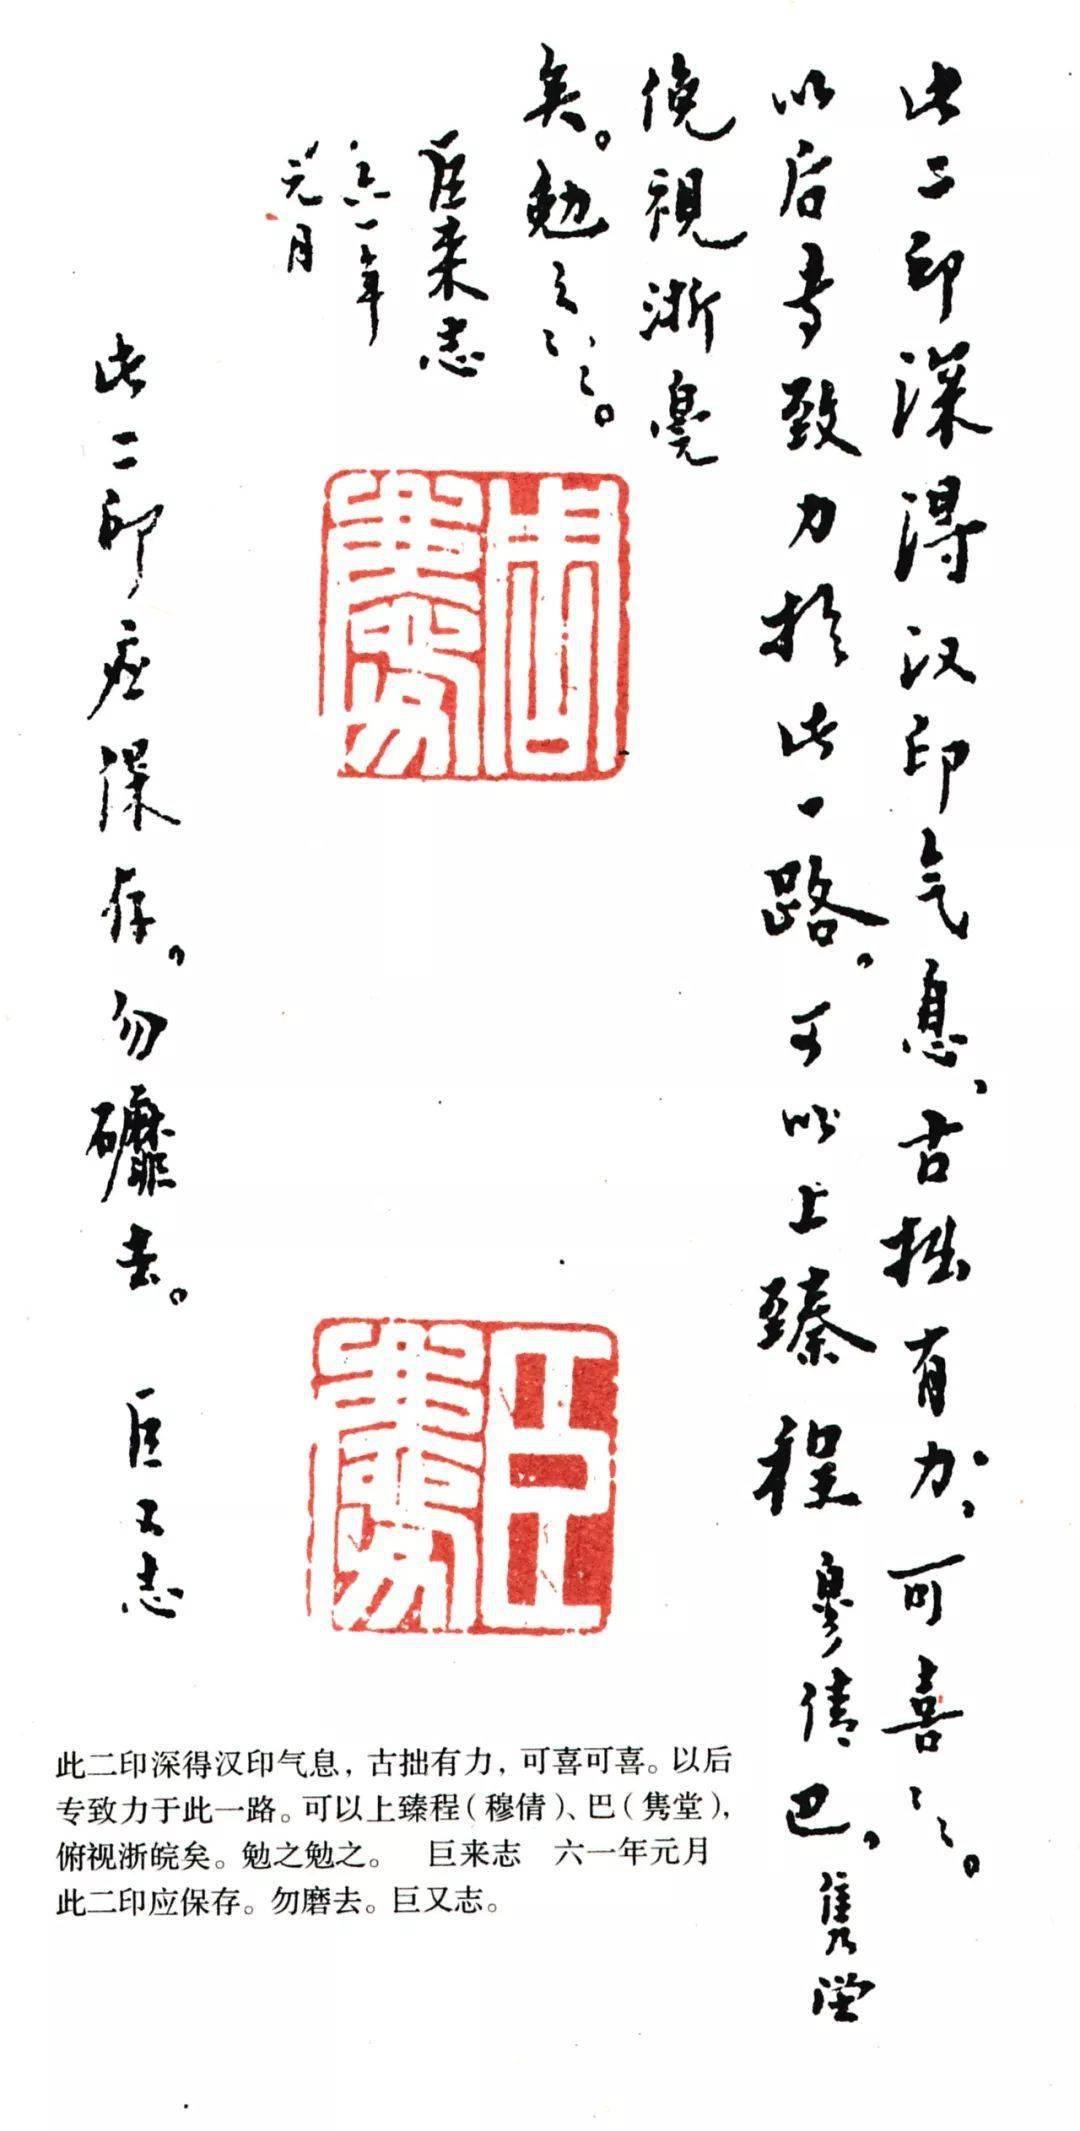 此二印深得汉印气息、古拙有力、可喜〻〻。
以后专致力於此一路。可以上臻程穆倩巴。隽堂
俛视浙皖
矣。勉之〻〻。
巨来志
六一年
元月
此二印应保存。勿磨去。 巨又志
此二印深得汉印气息，古拙有力，可喜可喜。以后
专致力于此一路。可以上臻程（穆倩）、巴（隽堂），
俯视浙皖矣。勉之勉之。 巨来志 六一年元月
此二印应保存。勿磨去。巨又志。